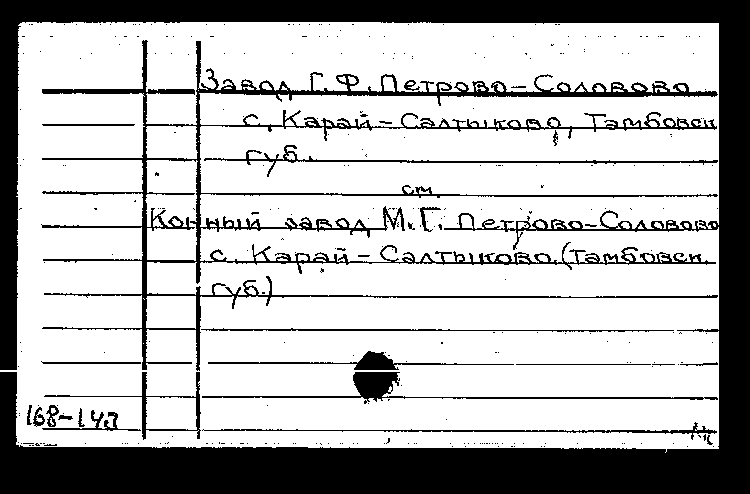 Завод Г. Ф. Петрово-Соловово
с. Карай-Салтыково, Тамбовск
губ.
см.
Конный завод М. Г. Петрово-Соловово
с. Карай-Салтыково (Тамбовск.
губ.)
168-143